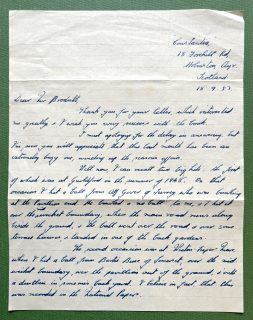 18 Foxhill Rd,
Ayr.
Scotland
18.9.83
Dear Mr Brodribb
Thank you for your letter, which interested
me greatly & I wish you every success with the book.
I must apologise for the delay in answering, but
I'm sure you will appreciate that this last month has been an
extremely busy one, winding up the season's affairs.
Well now, I can recall two big hits, the first
of which was at Guildford in the summer of 19. On that
occasion I hit a ball from Alf Gover of Surrey who was bowling
at the pavilion end. He bowled a to me, & I hit it
over the wicket boundary, where the main road runs along
side the ground, & the ball went over the road & over some
houses, & landed in one of the back gardens.
The second occasion was at
when I hit a ball from of Somerset, over the mid
wicket boundary, over the pavilion & out of the ground, & into
a back yard. I believe in fact that this
was recorded in the National Papers.